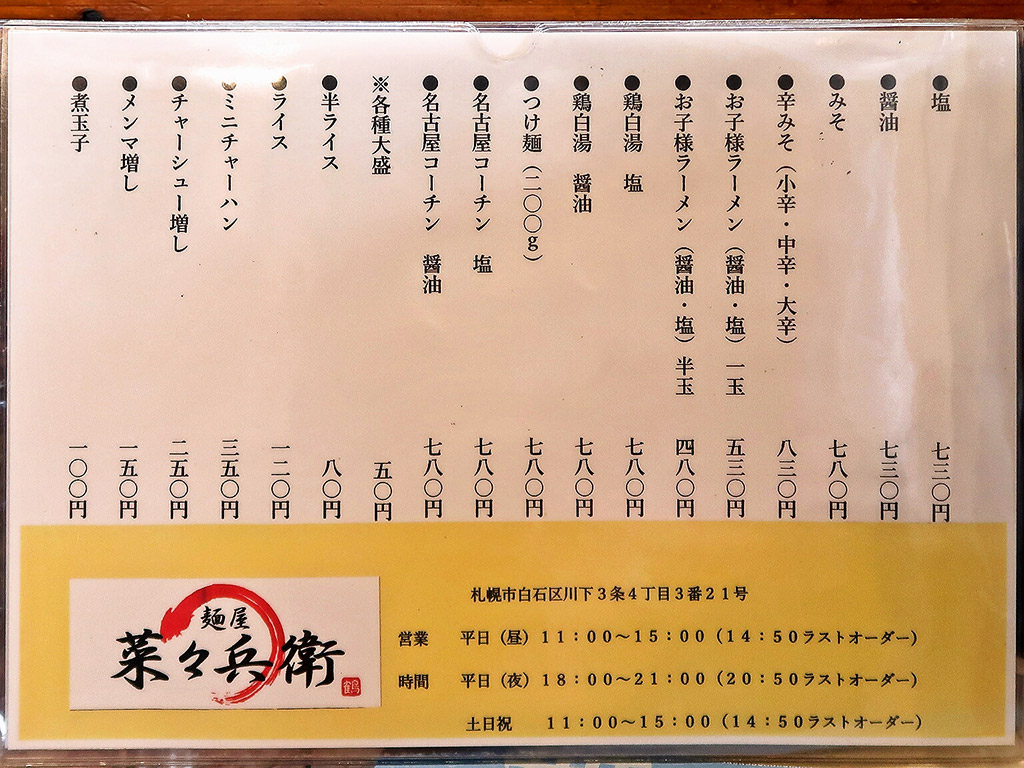 ●塩 七三〇円
●醤油 七三〇円
●みそ 七八〇円
●辛みそ（小辛・中辛・大辛） 八三〇円
●お子様ラーメン（醤油・塩）一玉 五三〇円
●お子様ラーメン（醤油・塩）半玉 四八〇円
●鶏白湯 塩 七八〇円
●鶏白湯 醤油 七八〇円
●つけ麺（二〇〇g） 七八〇円
●名古屋コーチン 塩 七八〇円
●名古屋コーチン 醤油 七八〇円
※各種大盛 五〇円
●半ライス 八〇円
●ライス 一二〇円
●ミニチャーハン 三五〇円
●チャーシュー増し 二五〇円
●メンマ増し 一五〇円
●煮玉子 一〇〇円
麺屋
菜々兵衛
鶴
札幌市白石区川下３条４丁目３番２１号
営業 平日（昼）１１：００〜１５：００（１４：５０ラストオーダー）
時間 平日（夜）１８：００〜２１：００（２０：５０ラストオーダー）
土日祝 １１：００〜１５：００（１４：５０ラストオーダー）